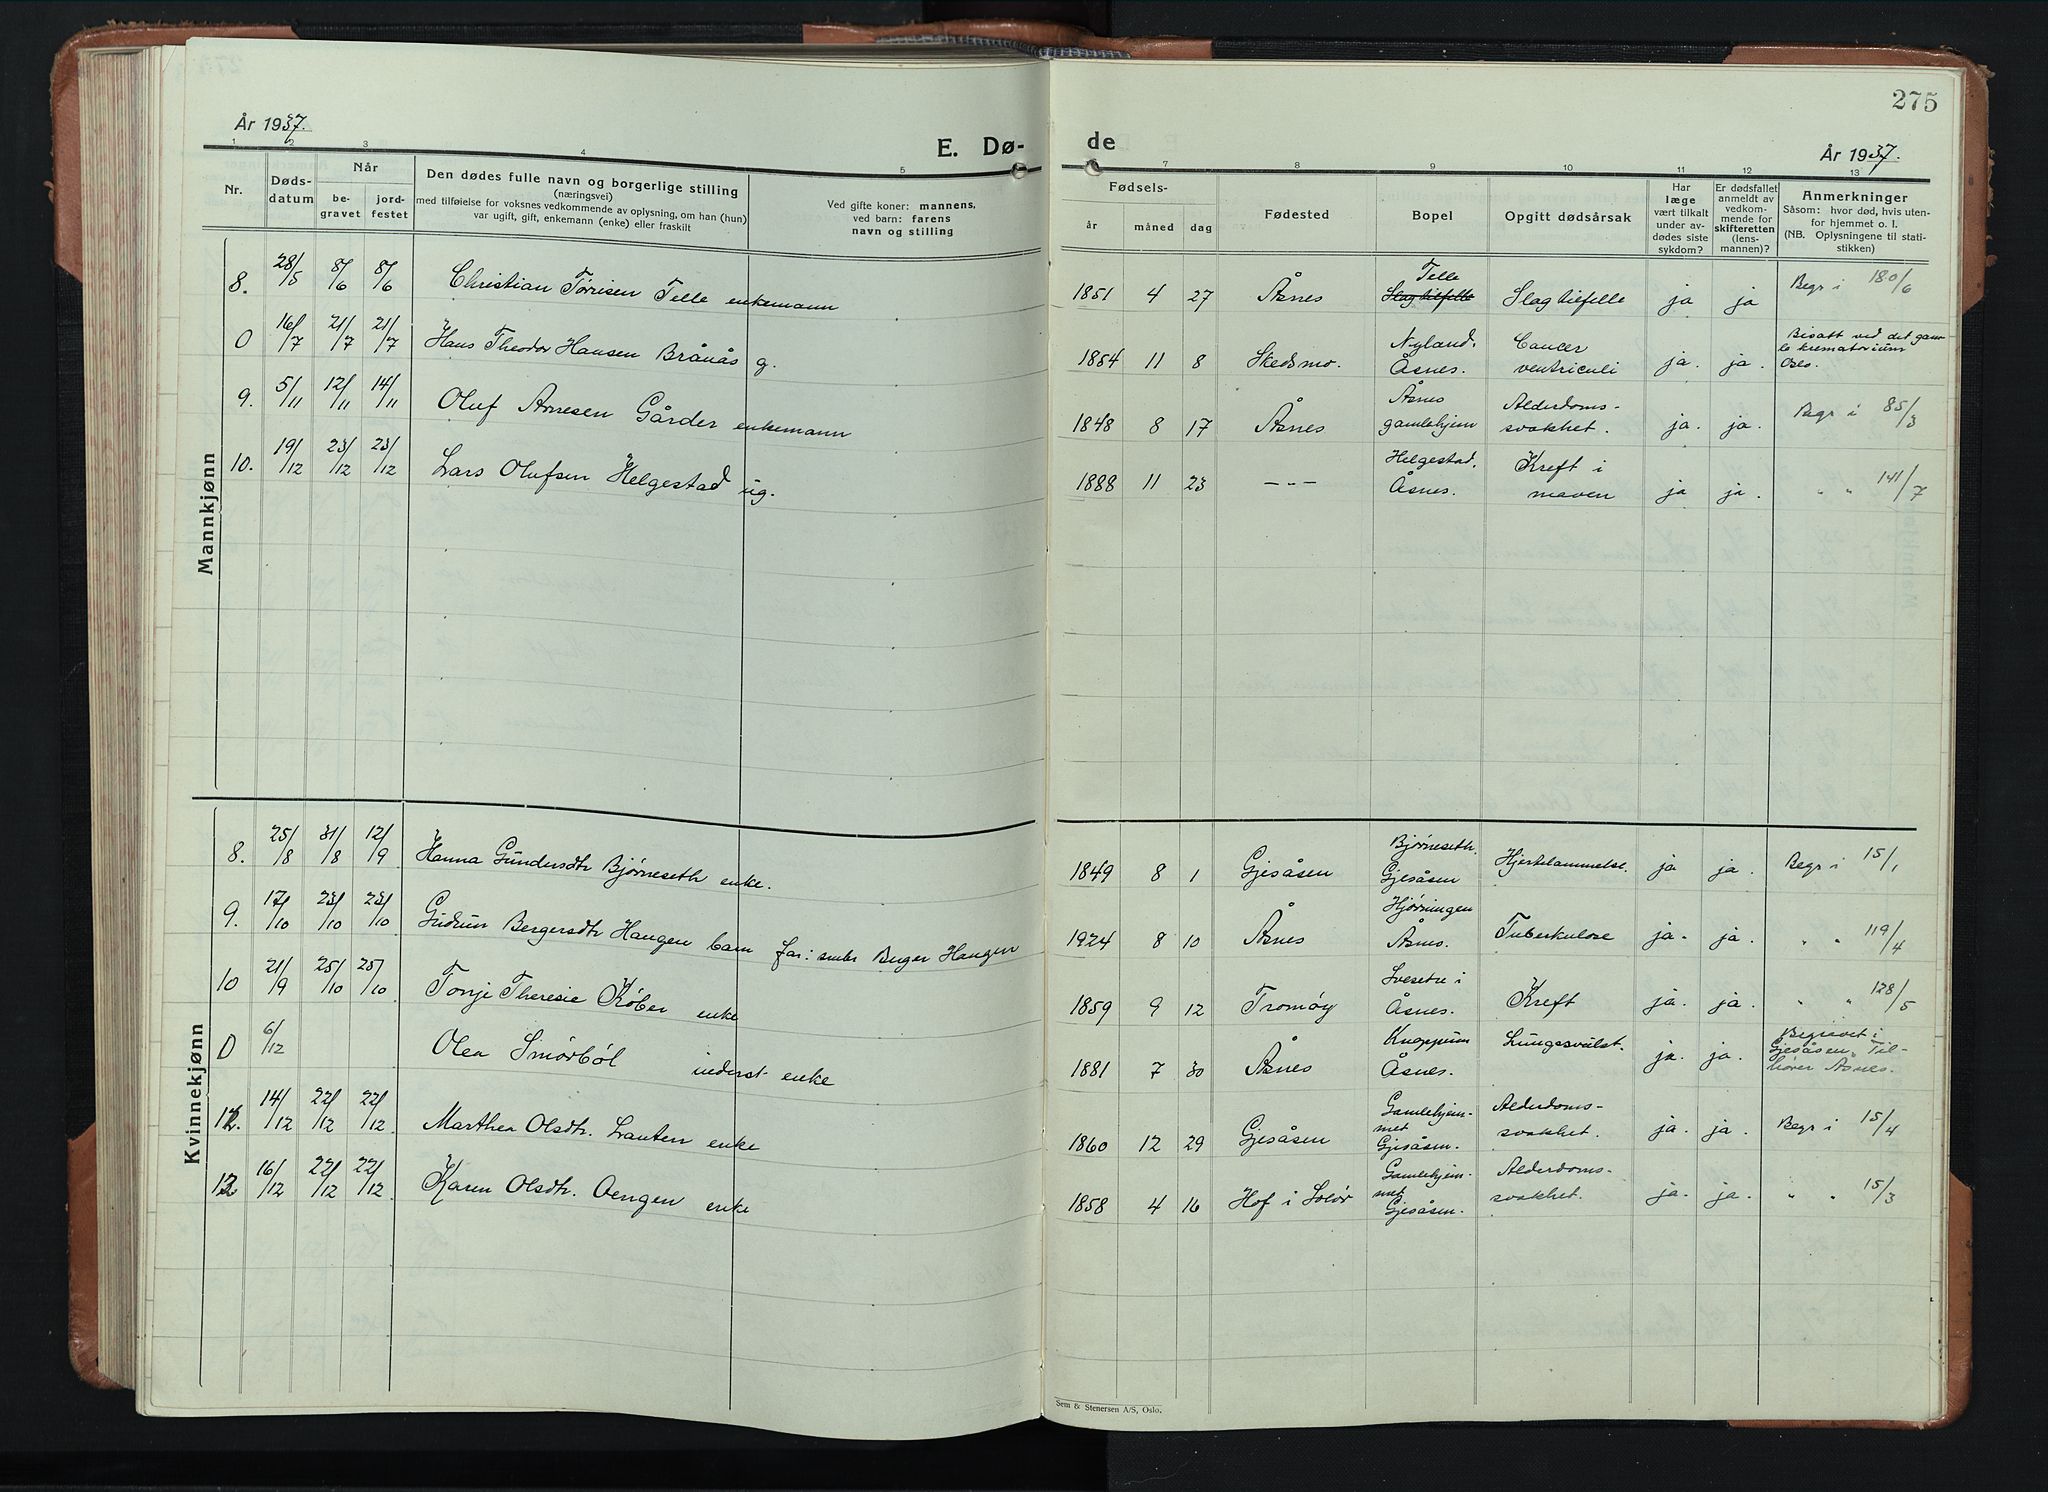 275
År 1937.
E. Dø-
de
År 1937.
1 2 3 4 5 7 8 9 10 11 12 13
Nr.
Døds-
datum
Når
be-
gravet
jord-
festet
Den dødes fulle navn og borgerlige stilling
(næringsvei)
med tilføielse for voksnes vedkommende av oplysning, om han (hun)
var ugift, gift, enkemann (enke) eller fraskilt
Ved gifte koner: mannens,
ved barn: farens
navn og stilling
Fødsels-
år måned dag
Fødested
Bopel
Opgitt dødsårsak
Har
læge
vært tilkalt
under av-
dødes siste
sykdom?
Er dødsfallet
anmeldt av
vedkom-
mende for
skifteretten
(lens-
mannen)?
Anmerkninger
Såsom: hvor død, hvis uten-
for hjemmet o. l.
(NB. Oplysningene til stati-
stikken)
Mannkjønn
8. 28/5 8/6 8/6 Christian Tørrisen Telle enkemann 1851 4 27 Åsnes Telle Slagtilfelle Slagtilfelle ja ja Begr i 180/6
0 16/7 21/7 21/7 Hans Theodor Hansen Brånås g. 1854 11 8 Skedsmo. Nyland. Åsnes. Cancer ventriculi ja. ja. Bisatt ved det gam-
le krematorium
Oslo.
9. 5/11 12/11 14/11 Oluf Arnesen Gårder enkemann 1848 8 17 Åsnes Åsnes gamlehjem Alderdoms-
svakhet. ja. ja. Begr i 85/3
10. 19/12 23/12 23/12 Lars Olufsen Helgestad ug. 1888 11 23 - - - Helgestad. Åsnes. Kreft i maven ja ja. " " 141/7
Kvinnekjønn
8. 25/8 31/8 12/9 Hanna Gundersdtr Bjørneseth enke. 1849 8 1 Gjesåsen Bjørneseth. Gjesåsen Hjertelammelse. ja ja. Begr i 15/1
9. 17/10 23/10 23/10 Gudrun Bergersdtr Haugen barn far: Berger Haugen 1924 8 10 Åsnes Åsnes. Tuberkulose ja. ja. " " 119/4
10 21/9 25/10 25/10 Tonje Theresie Köber enke 1859 9 12 Tromøy Åsnes. Kreft ja. ja. " " 128/5
0 6/12 Olea Smörböl inderst enke 1881 7 30 Åsnes Knappum Åsnes. Lungesvulst. ja. ja. Begravet i
Gjesåsen. Til-
hører Åsnes.
12. 14/12 22/12 22/12 Marthea Olsdtr. Lauten enke 1860 12 29 Gjesåsen Gamlehjem-
met
Gjesåsen. Alderdoms-
svakhet. ja. ja. Begr i 15/4
12 16/12 22/12 22/12 Karen Olsdtr. Oengen enke 1858 4 16 Hof i Solør Gamlehjem-
met.
Gjesåsen. Alderdoms-
svakhet. ja. ja. " " 15/3
Sem & Stenersen A/S, Oslo.